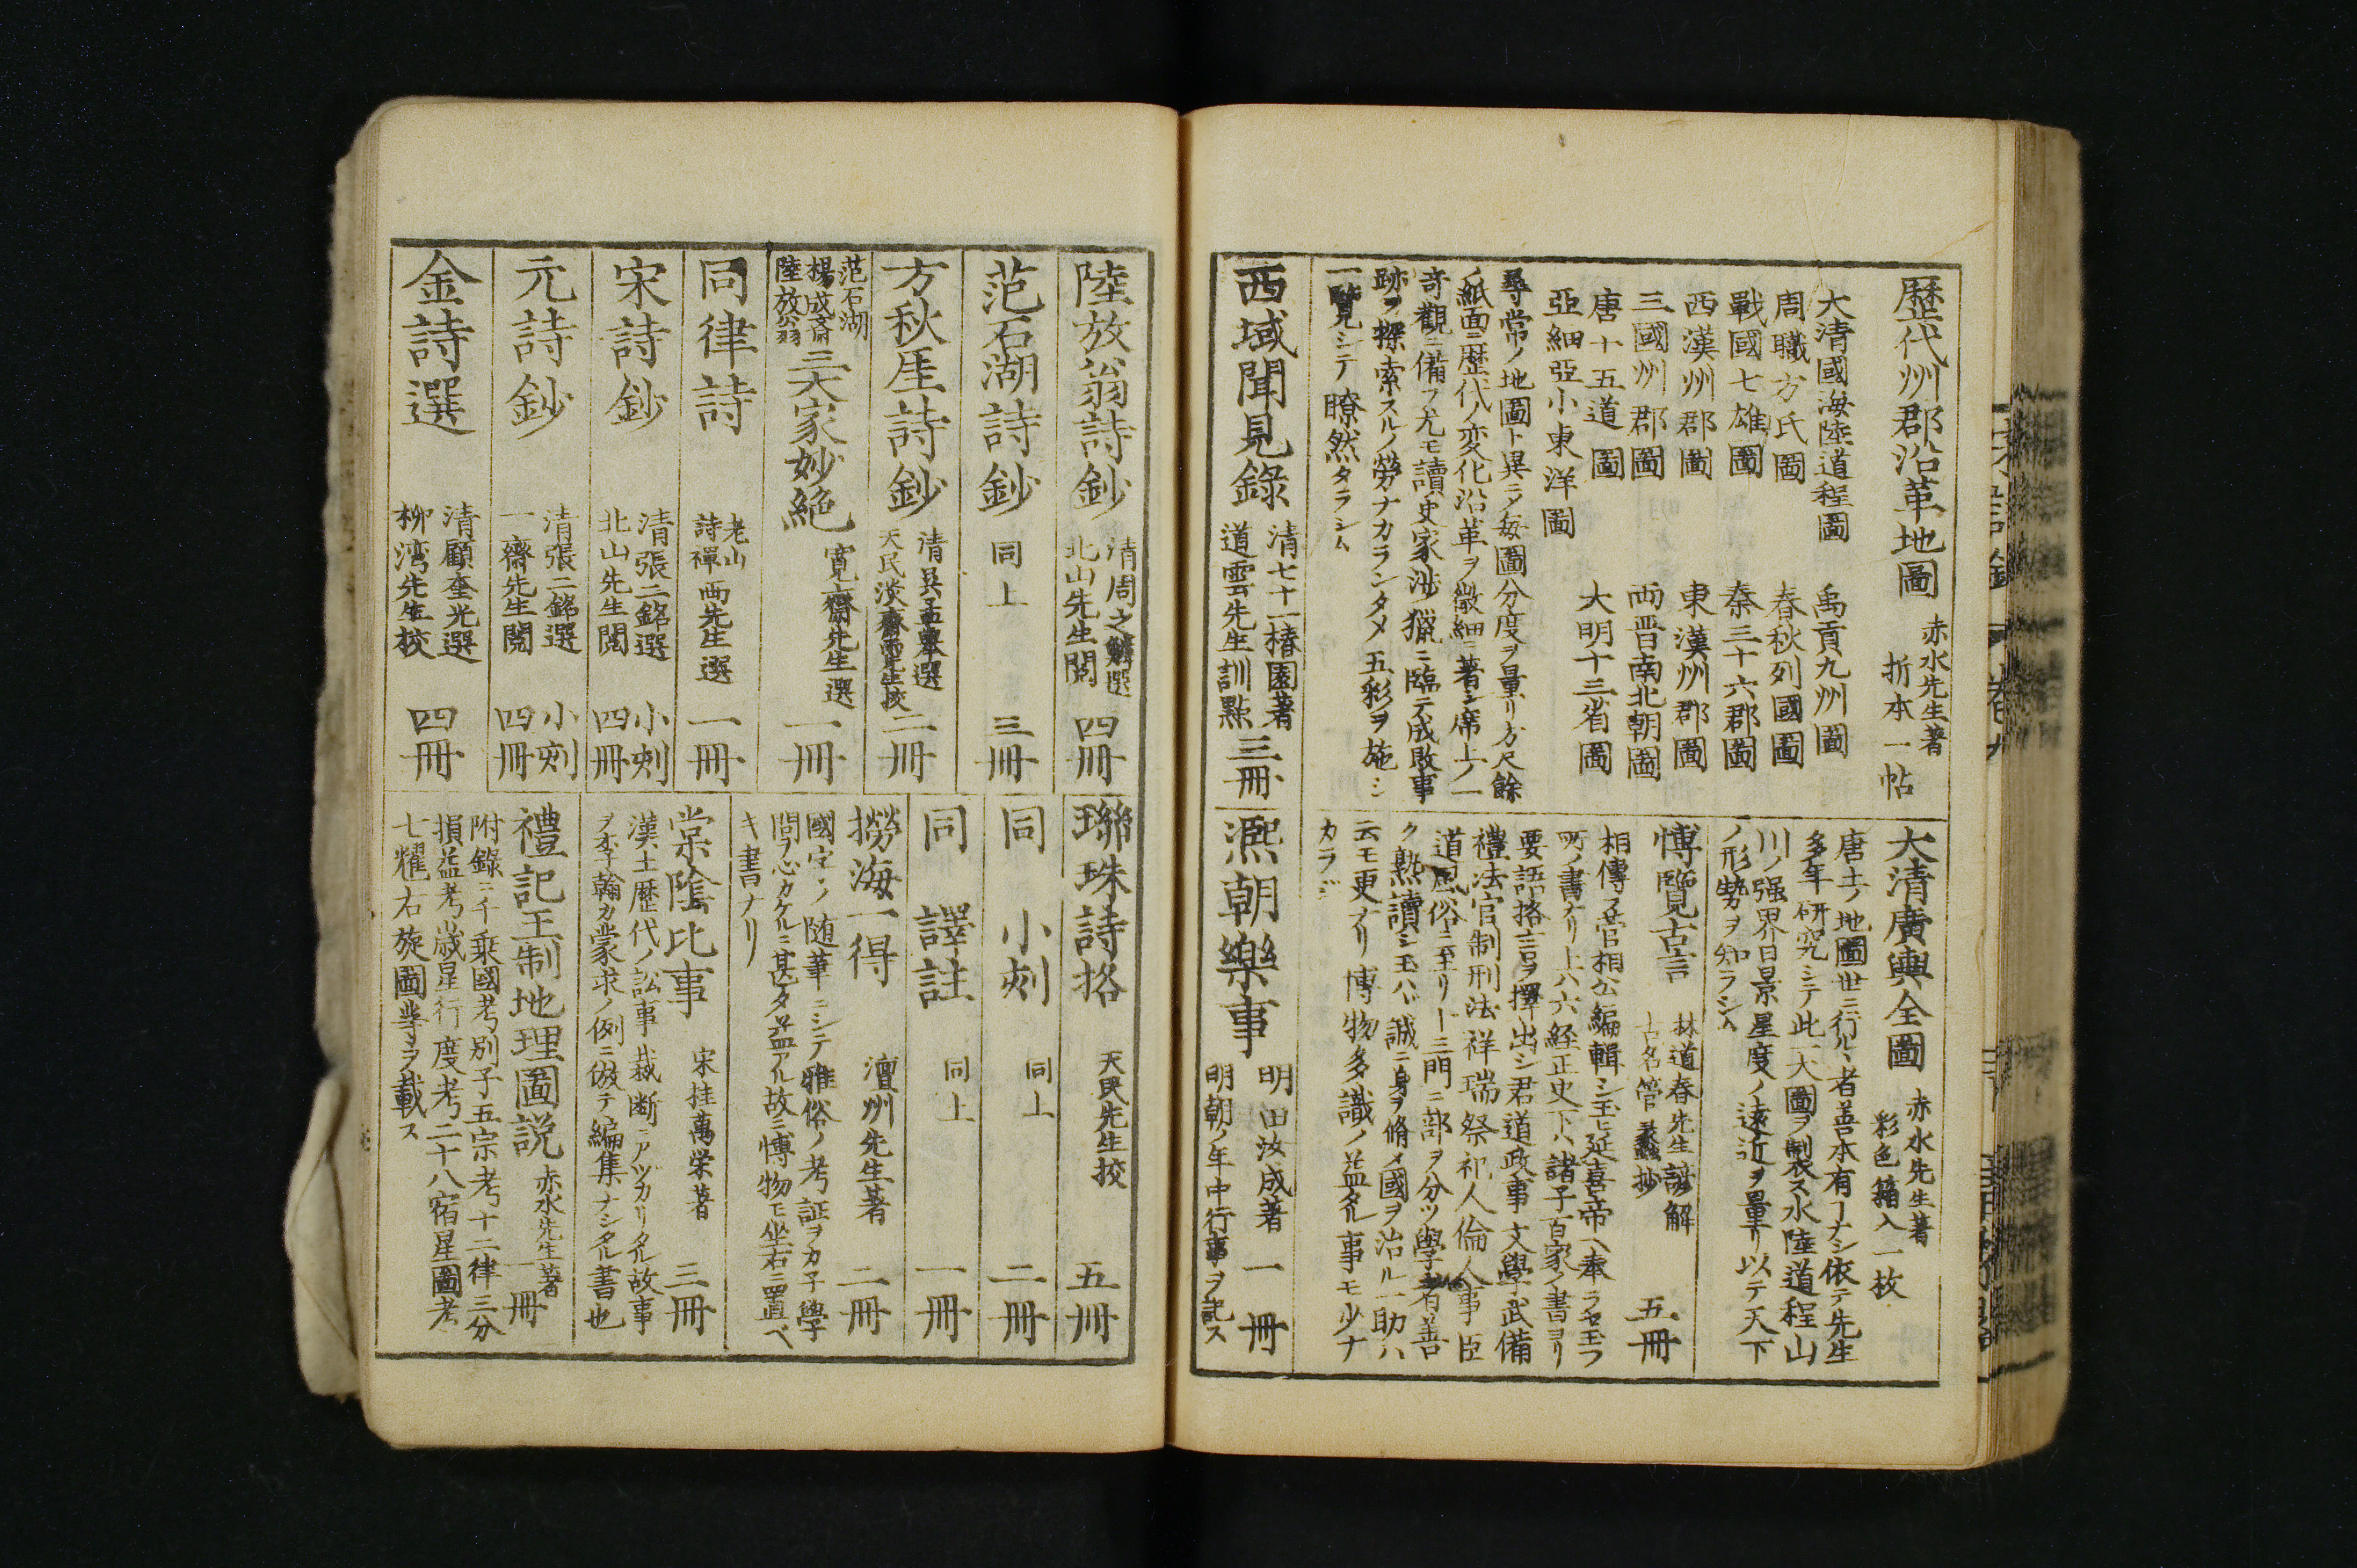 歴代州郡沿革地圖
赤水先生著
折本一帖
大清國海陸道程圖
禹貢九州圖
周職方氏圖
春秋列國圖
戰國七雄圖
秦三十六郡圖
西漢州郡圖
東漢州郡圖
三國州郡圖
兩晋南北朝圖
唐十五道圖
大明十三省圖
亞細亞小東洋圖
尋常ノ地圖ト異ニメ毎圖分度ヲ量リ方尺餘
ノ紙面ニ歴代ノ変化沿革ヲ微細ニ著シ席上ノ一
奇觀ニ備フ尤モ讀史家渉獵ニ臨テ成敗事
跡ヲ探索スルノ勞ナカランタメ五彩ヲ施シ
一覽シテ瞭然タラシム
西域聞見錄
清七十一椿園著
道雲先生訓點
三冊
大清廣輿全圖
赤水先生著
彩色箱入一枚
唐土ノ地圖世ニ行ルヽ者善本有ーナシ依テ先生
多年研究シテ此一大圖ヲ製ス水陸道程山
川ノ强界日景星度ノ遠近ヲ量リ以テ天下
ノ形勢ヲ知ラシム
博覽古言
林道春先生諺解
古名管蠡抄
五冊
相傳フ菅相公編輯シ玉ヒ延喜帝ヘ奉ラセ玉フ
所ノ書ナリ上ハ六経正史下ハ諸子百家ノ書ヨリ
要語格言ヲ擇出シ君道政事文學武備
禮法官制刑法祥瑞祭祀人倫人事臣
道風俗ニ至リー三門ニ部ヲ分ツ學者善
ク熟讀シ玉ハヾ誠ニ身ヲ脩メ國ヲ治ル一助ハ
云モ更ナリ博物多識ノ益タル事モ少ナ
カラズ
凞朝樂事
明田汝成著
明朝ノ年中行事ヲ記ス
一冊
陸放翁詩鈔
清周之鱗選
北山先生閲
四冊
范石湖詩鈔
同上
三冊
方秋厓詩鈔
清吳孟舉選
天民淡齋兩先生校
二冊
范石湖
楊成斎
陸放翁
三大家妙絶
寛齋先生選
一冊
同律詩
老山
詩禪
両先生選
一冊
宋詩鈔
清張二銘選
北山先生閲
小刻
四冊
元詩鈔
清張二銘選
一齋先生閲
小刻
四冊
金詩選
清顧奎光選
柳湾先生校
四冊
聯珠詩格
天民先生校
五冊
同
小刻
同上
二冊
同
譯註
同上
一冊
撈海一得
澶州先生著
二冊
國字ノ随筆ニシテ雅俗ノ考証ヲカ子學
問ヲ心カケルニ甚タ益アル故ニ博物モ坐右ニ置ベ
キ書ナリ
棠陰比事
宋桂萬栄著
三冊
漢土歴代ノ訟事裁断ニアヅカリタル故事
ヲ李翰カ蒙求ノ例ニ倣テ編集ナシタル書也
禮記王制地理圖説
赤水先生著
一冊
附錄ニ千乗國考別子五宗考十二律三分
損益考歳星行度考二十八宿星圖考
七耀右旋圖等ヲ載ス